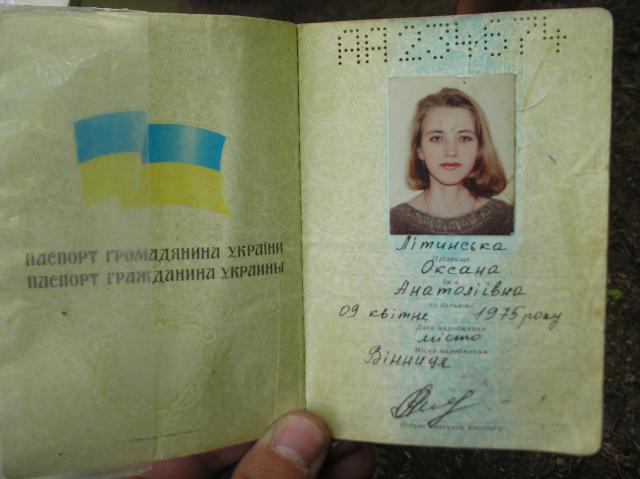 ПАСПОРТ ГРОМАДЯНИНА УКРАЇНИ
ПАСПОРТ ГРАЖДАНИНА УКРАИНЫ
АА 234674
Літинська
Прізвище
Оксана
Ім'я
Анатоліївна
По батькові
09 квітне 1975 року
Дата народження
місто
Місце народження
Вінниця
Підпис власника паспорта